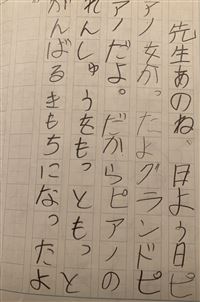 先生あのね、日よう日ピ
アノ女がったよグランドピ
アノだよ。だからピアノの
れんしゅうをもっともっと
がんばるきもちになったよ